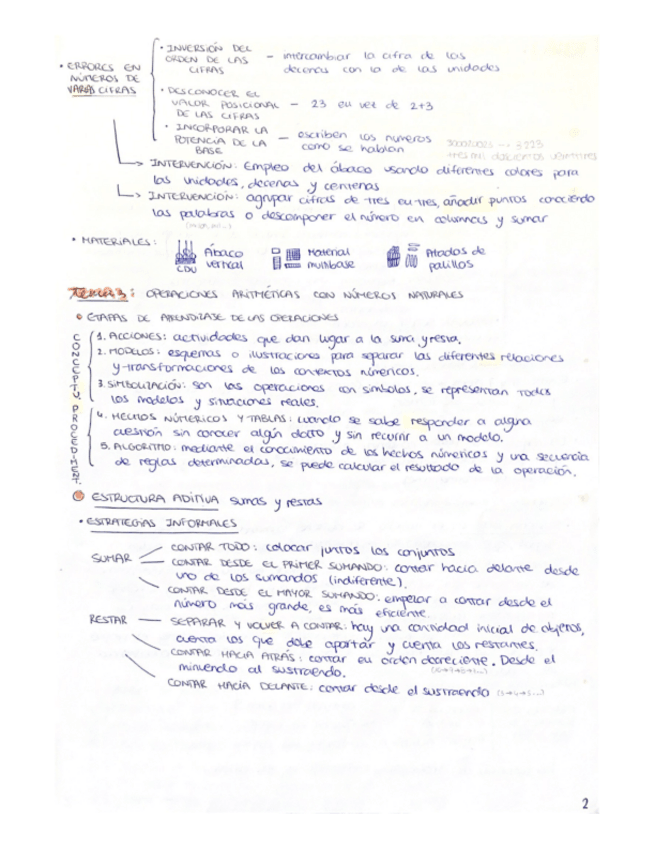 · INVERSIÓN DEL ORDEN DE LAS CIFRAS – intercambiar la cifra de las decenas con la de las unidades
· ERRORES EN NÚMEROS DE VARIAS CIFRAS
· DESCONOCER EL VALOR POSICIONAL DE LAS CIFRAS – 23 en vez de 2+3
· INCORPORAR LA POTENCIA DE LA BASE – escriben los numeros como se hablan
tres mil doscientos veintitres
INTERVENCIÓN: Empleo del ábaco usando diferentes colores para
las unidades, decenas y centenas
INTERVENCIÓN: agrupar cifras de tres en tres, añadir puntos conociendo
las palabras o descomponer el número en columnas y sumar
· MATERIALES:
Ábaco vertical
CDU
Material multibase
Atados de palillos
TEMA 3: OPERACIONES ARITMÉTICAS CON NÚMEROS NATURALES
ETAPAS DE APRENDIZAJE DE LAS OPERACIONES
CONCEPTU.
1. ACCIONES: actividades que dan lugar a la suma y resta.
2. MODELOS: esquemas o ilustraciones para separar las diferentes relaciones
y transformaciones de los contextos numéricos.
3. SIMBOLIZACIÓN: son las operaciones con símbolos, se representan todos
los modelos y situaciones reales.
PROCEDIMENT.
4. HECHOS NÚMERICOS Y TABLAS: cuando se sabe responder a alguna
cuestión sin conocer algún dato y sin recurrir a un modelo.
5. ALGORITMO: mediante el conocimiento de los hechos númericos y una secuencia
de reglas determinadas, se puede calcular el resultado de la operación.
ESTRUCTURA ADITIVA sumas y restas
· ESTRATEGIAS INFORMALES
SUMAR
CONTAR TODO: colocar juntos los conjuntos
CONTAR DESDE EL PRIMER SUMANDO: contar hacia delante desde
uno de los sumandos (indiferente).
CONTAR DESDE EL MAYOR SUMANDO: empezar a contar desde el
número más grande, es más eficiente.
RESTAR
SEPARAR Y VOLVER A CONTAR: hay una cantidad inicial de objetos,
cuenta los que debe apartar y cuenta los restantes.
CONTAR HACIA ATRÁS: contar en orden decreciente. Desde el
minuendo al sustraendo.
CONTAR HACIA DELANTE: contar desde el sustraendo
2